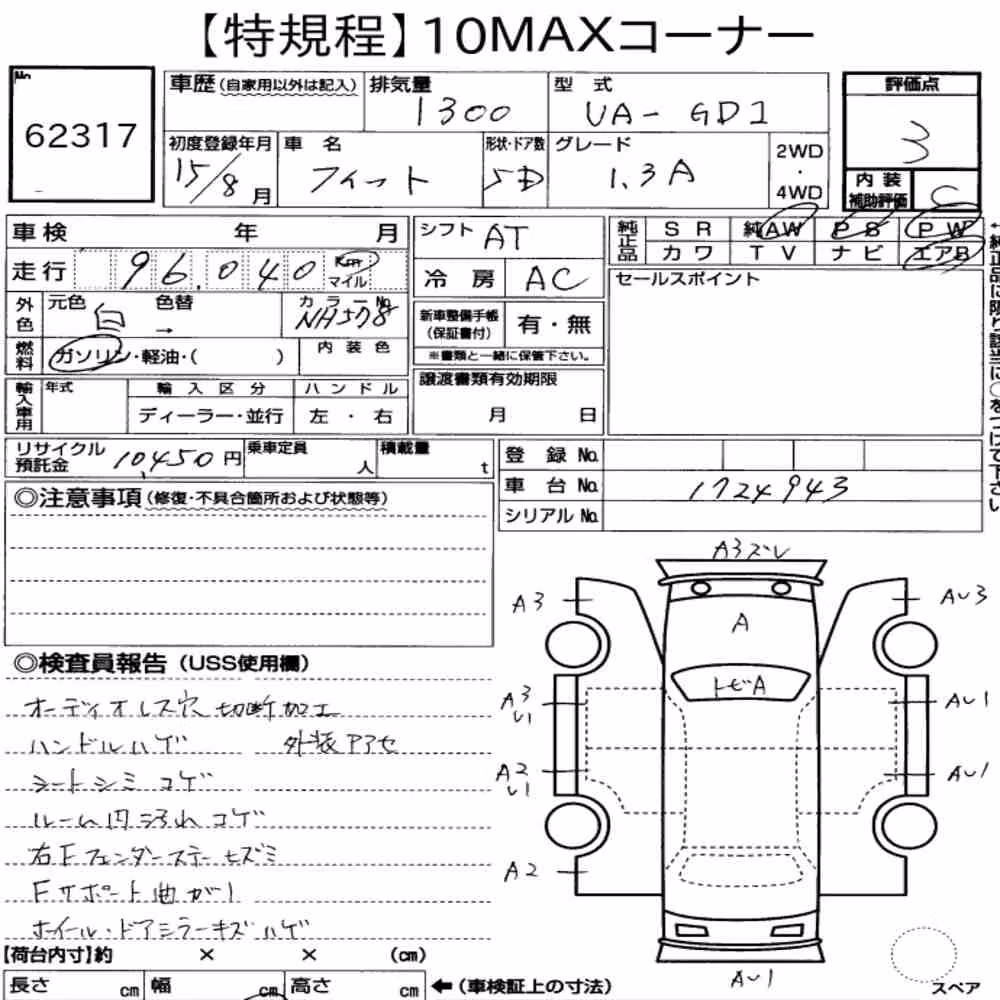 【特規程】10MAXコーナー
No.
62317
車歴 (自家用以外は記入)
排気量
1300
型式
UA-GD1
評価点
3
初度登録年月
15/8月
車名
フィット
形状・ドア数
5D
グレード
1.3A
2WD
・
4WD
内装
補助評価
C
車検 年 月
走行 96.040 Km マイル
シフト AT
冷房 AC
純正品
SR 純AW PS PW
カワ TV ナビ エアB
←純正品に限り該当に○をつけて下さい
セールスポイント
外色
元色 白
色替 →
カラーNo. NH578
燃料
ガソリン・軽油・( )
内装色
新車整備手帳
(保証書付)
有・無
※書類と一緒に保管下さい。
輸入車用
年式
輸入区分
ディーラー・並行
ハンドル
左・右
譲渡書類有効期限
月 日
リサイクル
預託金
10,450円
乗車定員
人
積載量
t
登録No.
車台No. 1724943
シリアルNo.
◎注意事項 (修復・不具合箇所および状態等)
◎検査員報告 (USS使用欄)
オーディオレス穴切断加工
ハンドルハゲ 外装アアセ
シートシミ コゲ
ルーム内汚れコゲ
右Fフェンダーステーヒズミ
Fサポート曲がり
ホイール・ドアミラーキズハゲ
A3ズレ
A3
AU3
A
トビA
A3
U1
AU1
A2
U1
AU1
A2
AU1
スペア
【荷台内寸】約 × × (cm)
長さ cm 幅 cm 高さ cm ←(車検証上の寸法)